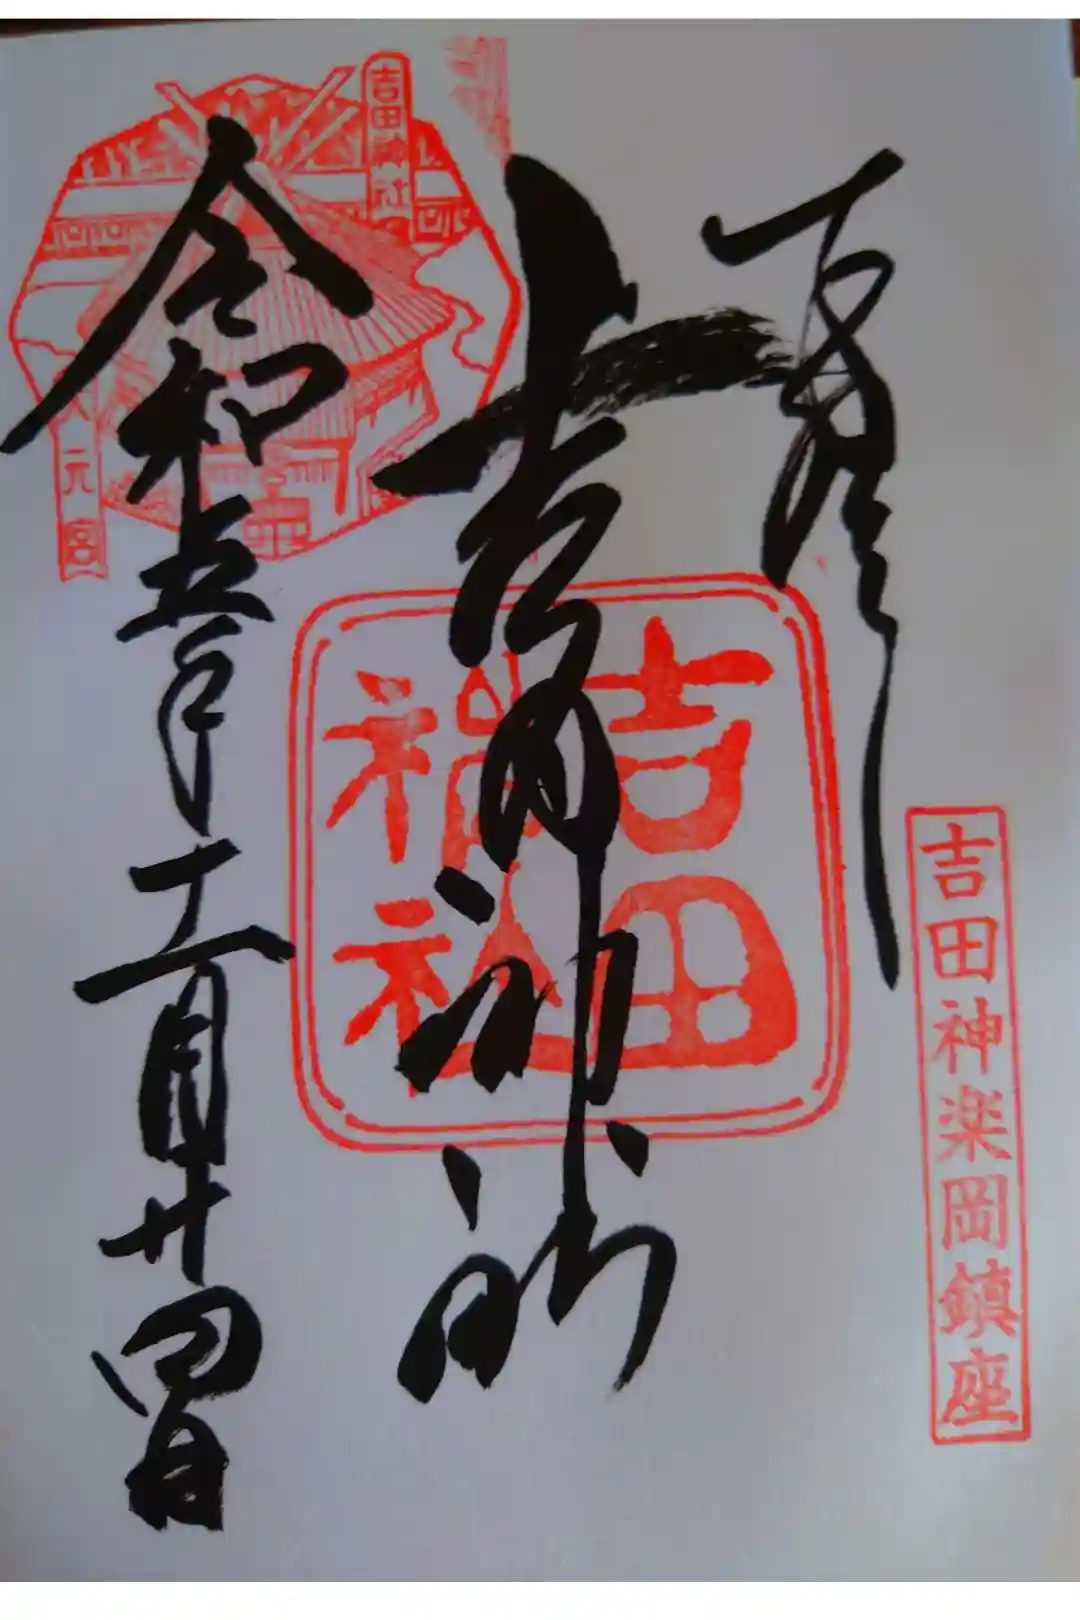 奉拝
吉田神社
令和五年十一月廿四日
吉田神楽岡鎮座
吉田神社
吉田神社